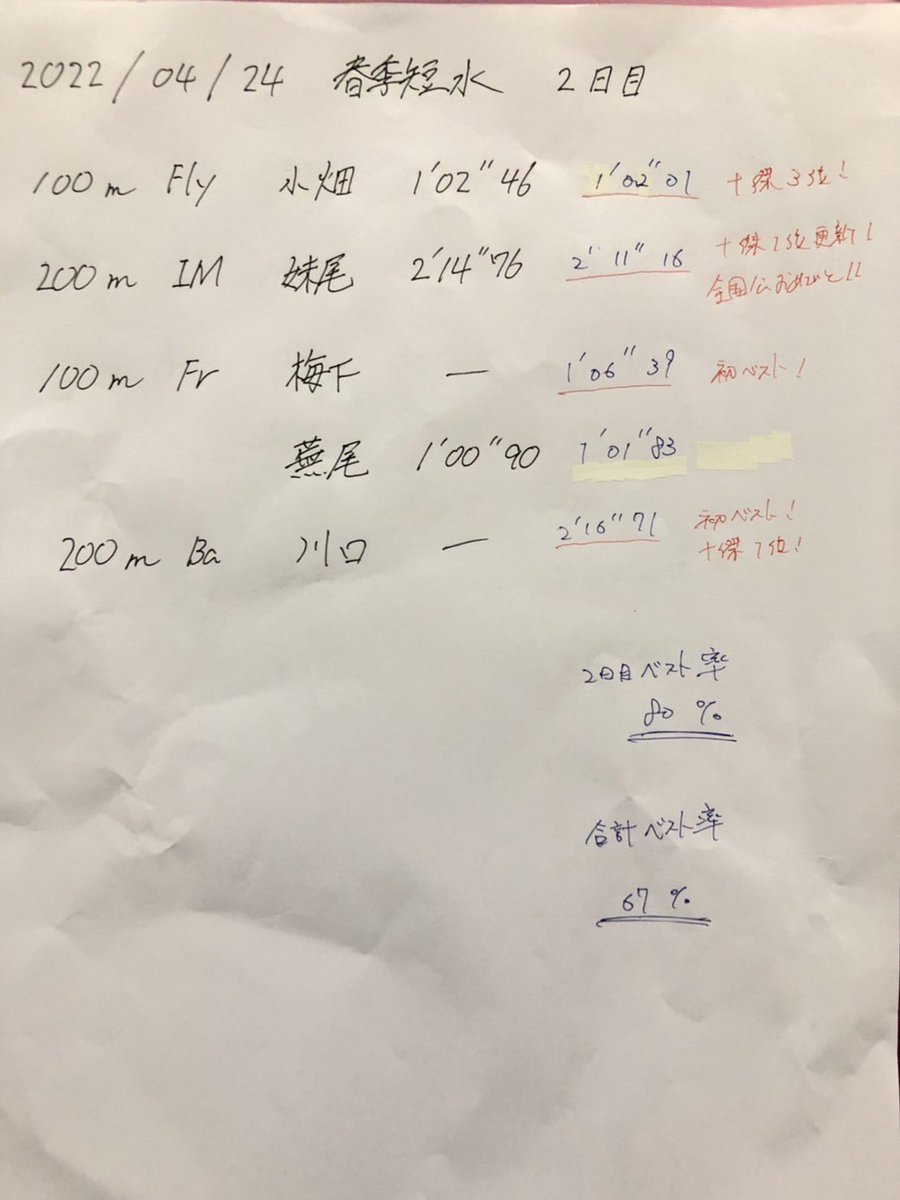 2022/04/24 春季短水 2日目
100m Fly 小畑 1'02"46 1'02"01 十傑3位!
200m IM 妹尾 2'14"76 2'11"16 十傑1位更新!
全国公おめでと!!
100m Fr 梅下 — 1'06"39 初ベスト!
蕪尾 1'00"90 1'01"83
200m Ba 川口 — 2'16"71 初ベスト!
十傑1位!
2日目ベスト率
80%
合計ベスト率
67%